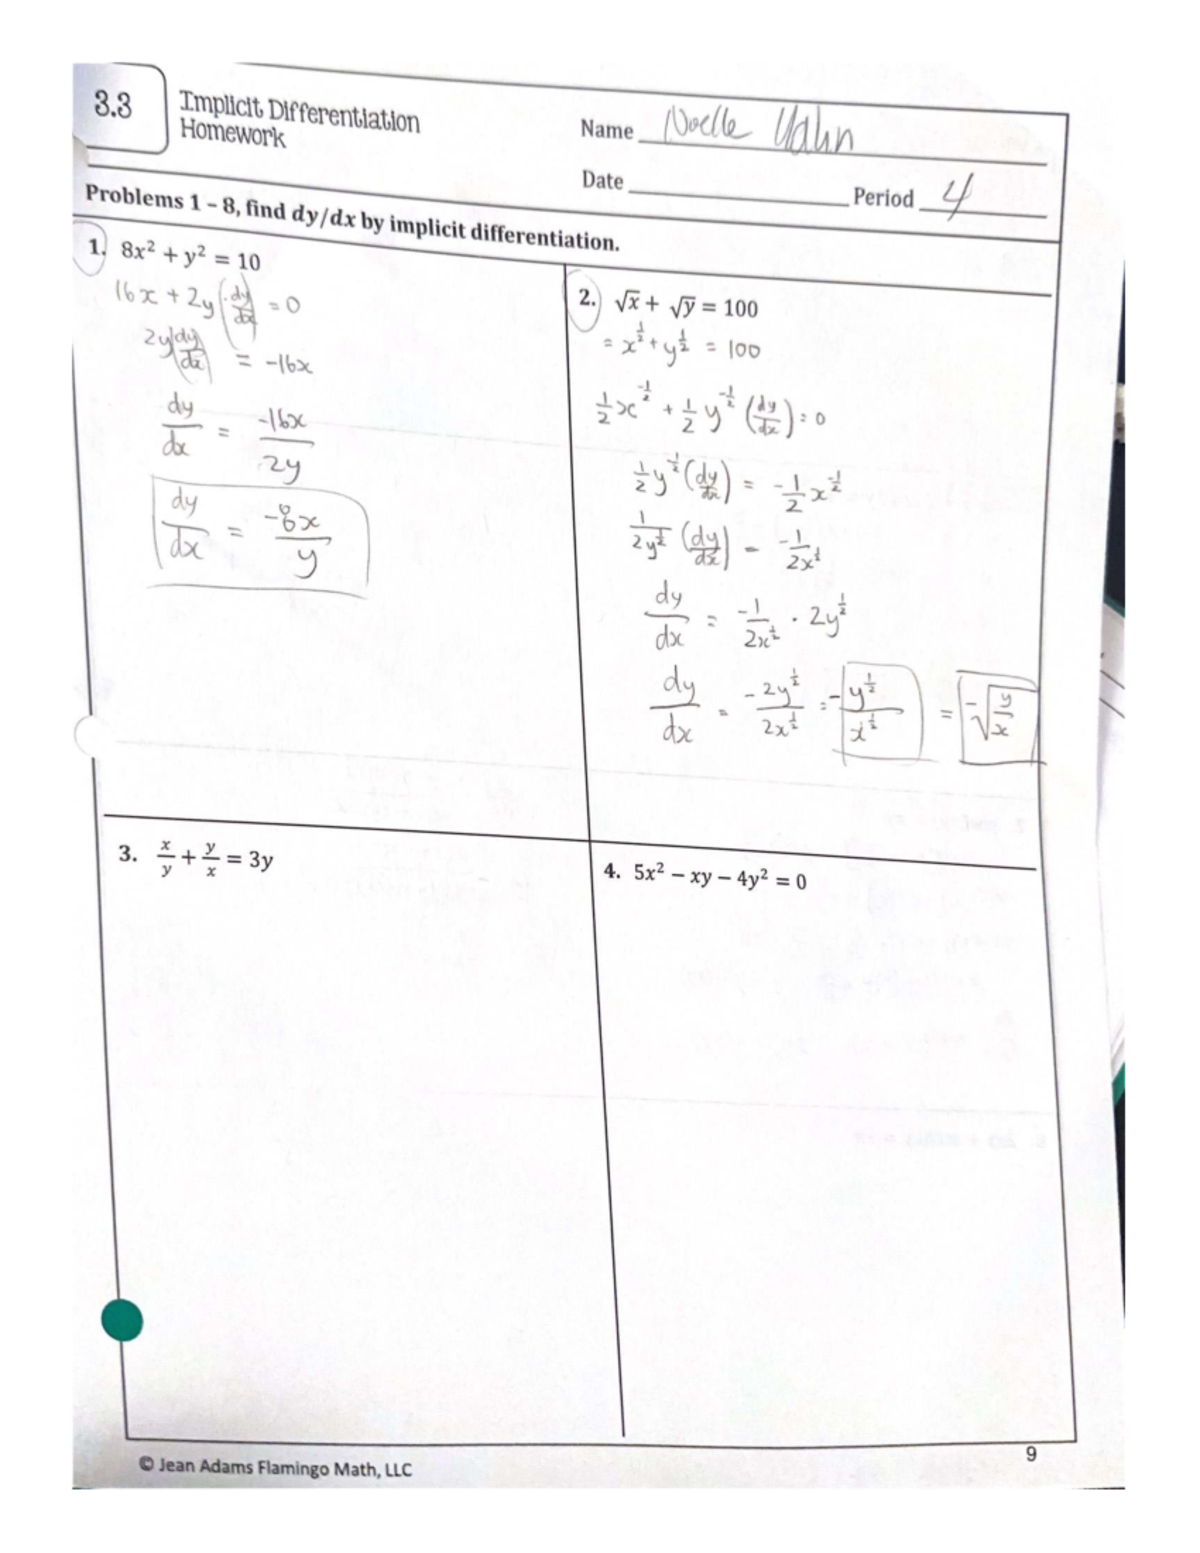 3.3
Implicit Differentiation
Homework
Name Noelle
Date
Period 4
Problems 1 – 8, find dy/dx by implicit differentiation.
1. 8x² + y² = 10
16x + 2y(dy/dx) = 0
2y(dy/dx) = -16x
dy/dx = -16x/2y
dy/dx = -8x/y
2. √x + √y = 100
= x^½ + y^½ = 100
½x^-½ + ½y^-½ (dy/dx) = 0
½y^-½ (dy/dx) = -½x^-½
1/2y^½ (dy/dx) = -1/2x^½
dy/dx = -1/2x^½ · 2y^½
dy/dx = -2y^½/2x^½ = -y^½/x^½ = -√(y/x)
3. x/y + y/x = 3y
4. 5x² – xy – 4y² = 0
© Jean Adams Flamingo Math, LLC
9